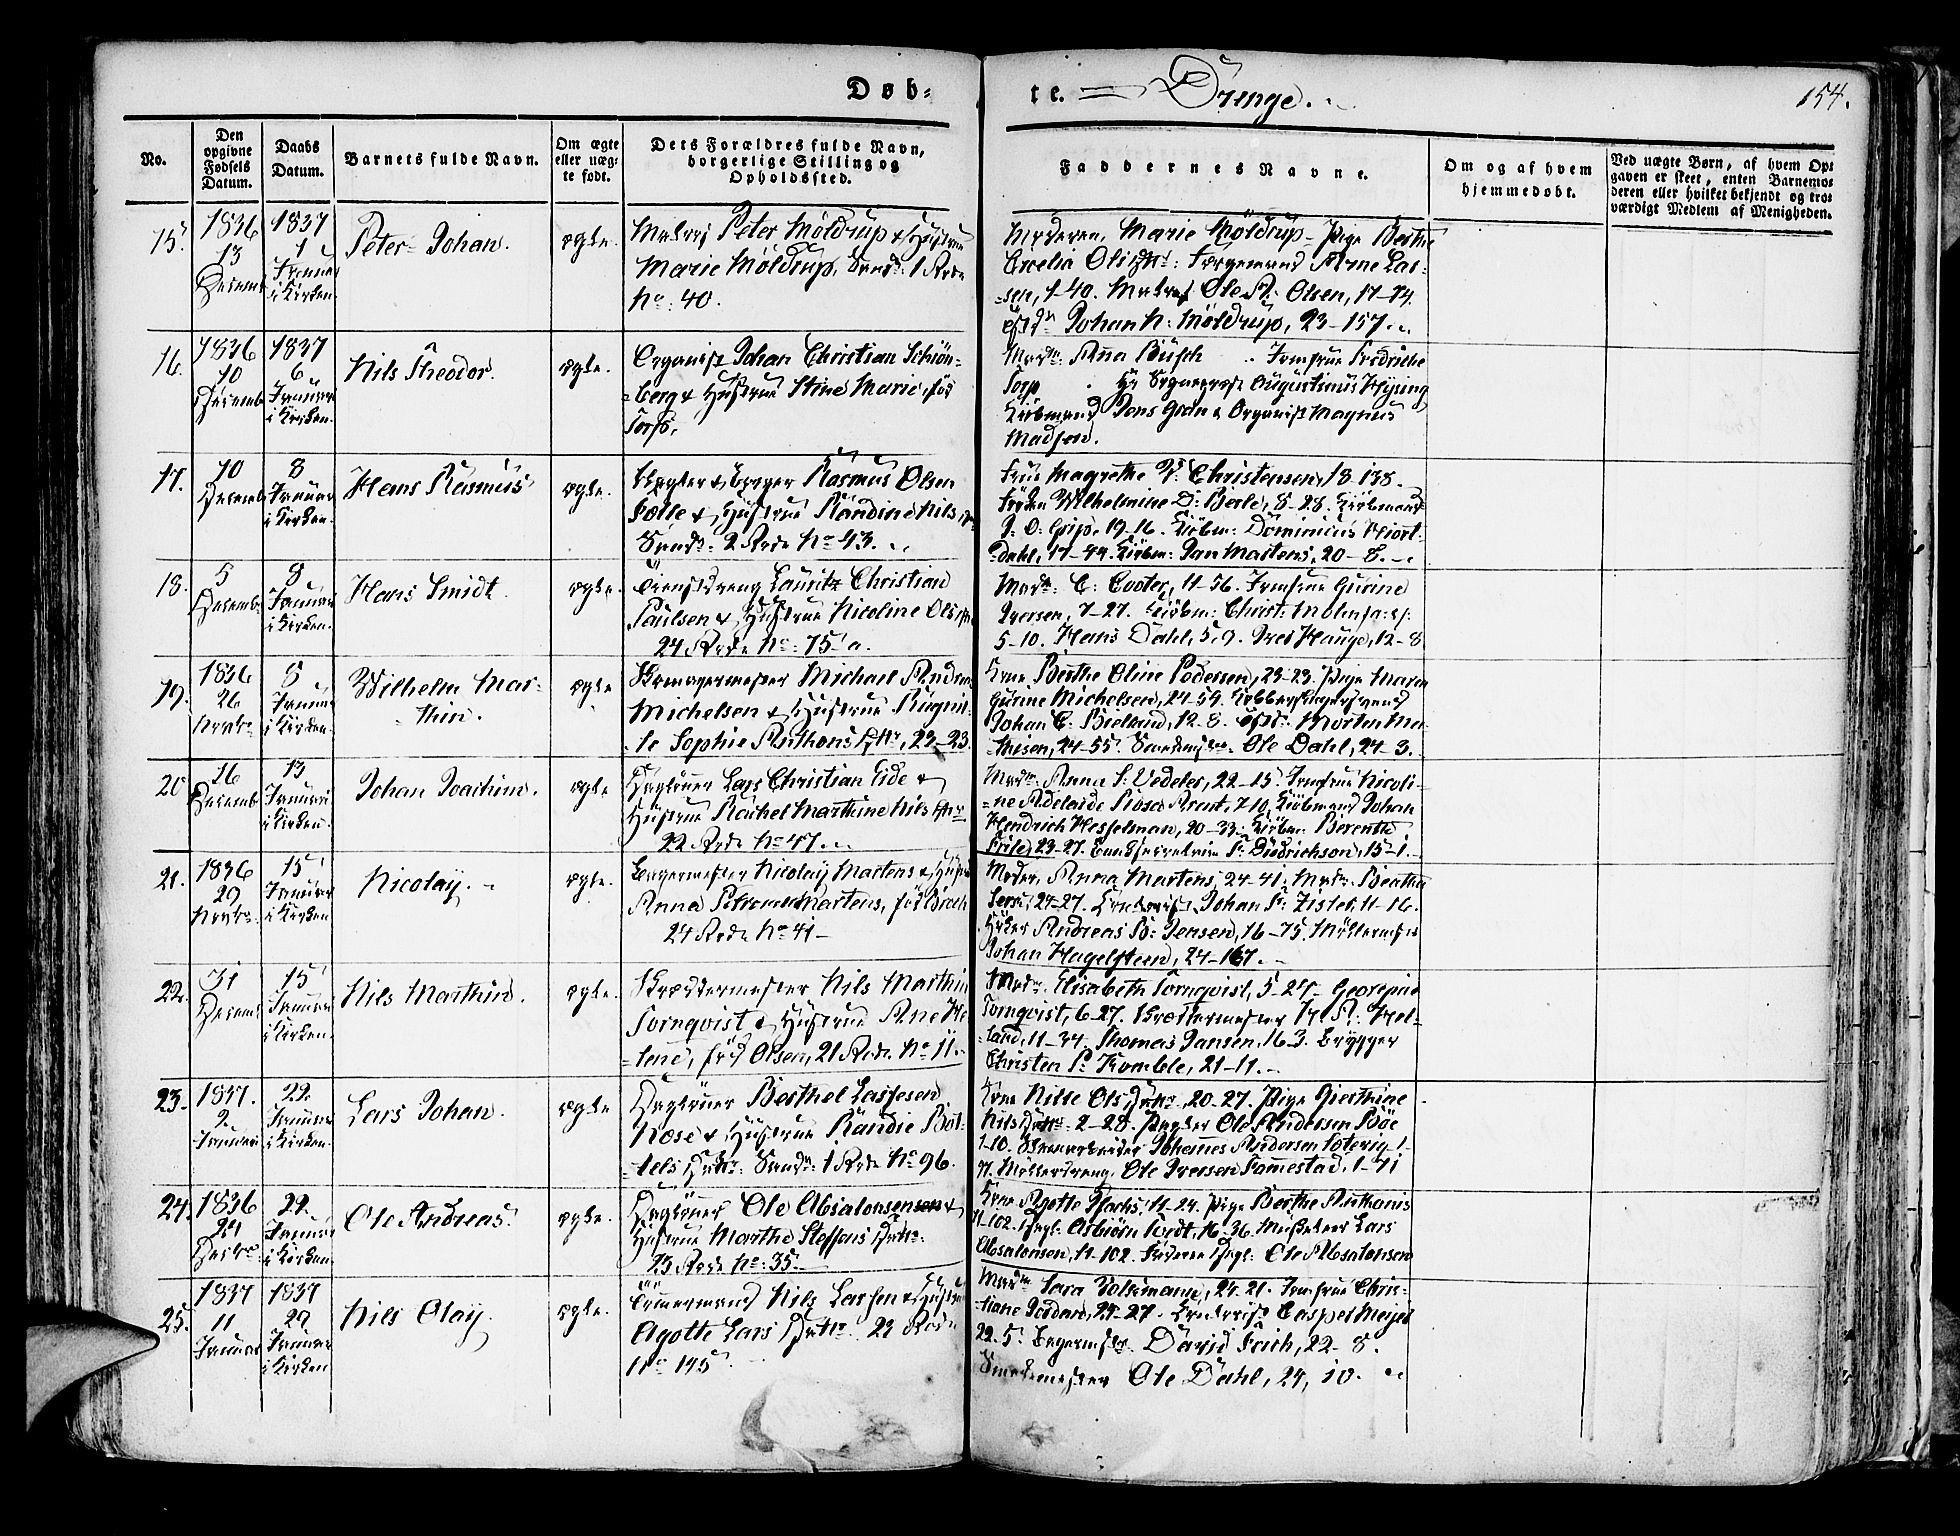 Døb-
te. = Drenge.
154.
No.
Den opgivne Fødsels Datum.
Daabs Datum.
Barnets fulde Navn.
Om ægte eller uægte født.
Dets Forældres fulde Navn, borgerlige Stilling og Opholdssted.
Faddernes Navne.
Om og af hvem hjemmedøbt.
Ved uægte Børn, af hvem Opgaven er skeet, enten Barnemoderen eller hvilket bekjendt og troværdigt Medlem af Menigheden.
15.
1836
13
Decemb
1837
1
Januar
i Kirken.
Peter Johan.
ægte.
Peter Möldrup & Hustrue
Marie Möldrup, Sandv: 1 Rode
No. 40.
Moderen, Marie Möldrup. Pige Berthe
Cecelia Olisdtr: Færgemand Arne Las-
sen, 1-40. Ole A: Olsen, 17-14
Johan N: Möldrup, 23-157.
16.
1836
10
Decemb
1837
6
Januar
i Kirken.
Nils Theodor.
ægte.
Organist Johan Christian Schiön-
berg & Hustrue Stine Marie, fød
Torp.
Mad: Anna Büsch Jomfrue Fredriche
Torp. Hr Sogneprest Augustinus Hysing
Kiöbmand Jens Gran & Organist Magnus
Madsen.
17.
10
Decemb
8
Januar
i Kirken.
Hans Rasmus
ægte.
Rasmus Olsen
Sælle & Hustrue Randine Nils
Sandv: 2 Rode No 43.
Frue Magrethe V: Christensen, 18-138.
Fröken Wilhelmine D: Berle, 8-28. Kiöbmand
J. O: Grip, 19-16. Kiöbm: Dominicus Hiort-
dahl, 17-44. Kiöbm: Jan Martens, 20-8.
18.
5
Decemb
8
Januar
i Kirken.
Hans Smidt.
ægte.
Tienestdreng Lauritz Christian
Paulsen & Hustrue Nicoline Ols
24 Rode No: 75 a.
Mad: C: Cooter, 11-56. Jomfrue Gurine
Iversen, 7-27. Kiöbm: Christ:
5-10. Hans Dahl, 5-9. Iver Hauge, 12-8
19.
1836
26
Novbr
8
Januar
i Kirken.
Wilhelm Mar-
thin.
ægte
Skomagermester Michael Andreas
Michelsen & Hustrue Ragnil-
le Sophie Anthonisdtr, 23-23.
Kone Berthe Oline Pedersen, 23-23. Pige Maren
Gurine Michelsen, 24-59. Kobberslagersvend
Johan C: Bielland, 12-8. Morten Ma-
thisen, 24-55. Ole Dahl, 24-3.
20
26
Decemb
13
Januar
i Kirken.
Johan Joachim.
ægte
Dagløner Lars Christian Eide &
Hustrue Rachel Marthine Nilsdtr
22 Rode No 47.
Mad: Anna S: Vedeler, 22-15. Jomfrue Nicoli-
ne Adelaide Rosa Arnt, 7-10. Kiöbmand Johan
Hendrich Hesselman, 20-33. Kiöbm: Berenth
Frile, 23-27. Diedrichson, 15-1.
21.
1836
29
Novbr.
15
Januar
i Kirken
Nicolay.
ægte.
Bagermester Nicolay Martens & Hustr
Anna Martens, fød
24 Rode No 41
Moder, Anna Martens, 24-41. Mad: Berthe
24-27. Johan Fr: Zisler, 11-16.
Andreas B: Jensen, 16-75. Möllermester
Johan Hagelsteen, 24-167.
22.
31
Decemb
15
Januar
i Kirken.
Nils Marthin.
ægte.
Skræddermester Nils Marthin
Tornqvist & Hustrue Ane He-
lene, fød Olsen, 21 Rode. No 11.
Mad: Elisabeth Tornqvist, 5-27. Georgine
Tornqvist, 6-27. Skræddermester H. A: Hel-
land, 11-34. Thomas Jansen, 16-3. Brygger
Christen P: Tromble, 21-11.
23.
1837.
2
Januar
22.
Januar
i Kirken.
Lars Johan.
ægte
Dagløner Berthel Lassesen
Næse & Hustrue Randie Bot-
tels Dtr: Sandv: 1 Rode No 96.
Kone Nille Olsdtr, 20-27. Pige Gierthine
Nilsdtr: 2-28. Ole Andersen Böe
1-10. Johannes Andersen
Möllerdreng Ole Iversen Tommestad, 1-71
24.
1836
24
Decbr
22.
Januar
i Kirken.
Ole Andreas.
ægte.
Dagløner Ole Absalonsen &
Hustrue Marthe Steffens Datr:
23 Rode No: 35.
Kone Agotte 11-24. Pige Berthe Anthonis
11-102. Dagl: Asbiörn 16-36. Lars
Absalonsen, 11-102. Faderen Dagl: Ole Absalonsen
25.
1837
11
Januar
1837
29
Januar
i Kirken
Nils Olay.
ægte.
Tömmermand Nils Larsen & Hustrue
Agotte Lars Datr. 23 Rode
No 145
Mad: Sara Volkmann, 24-21. Jomfrue Chris-
tiane 25-27. Casper Meyer
22-5. Bagermstr. David Frich, 22-8.
Ole Dahl, 24, 10.